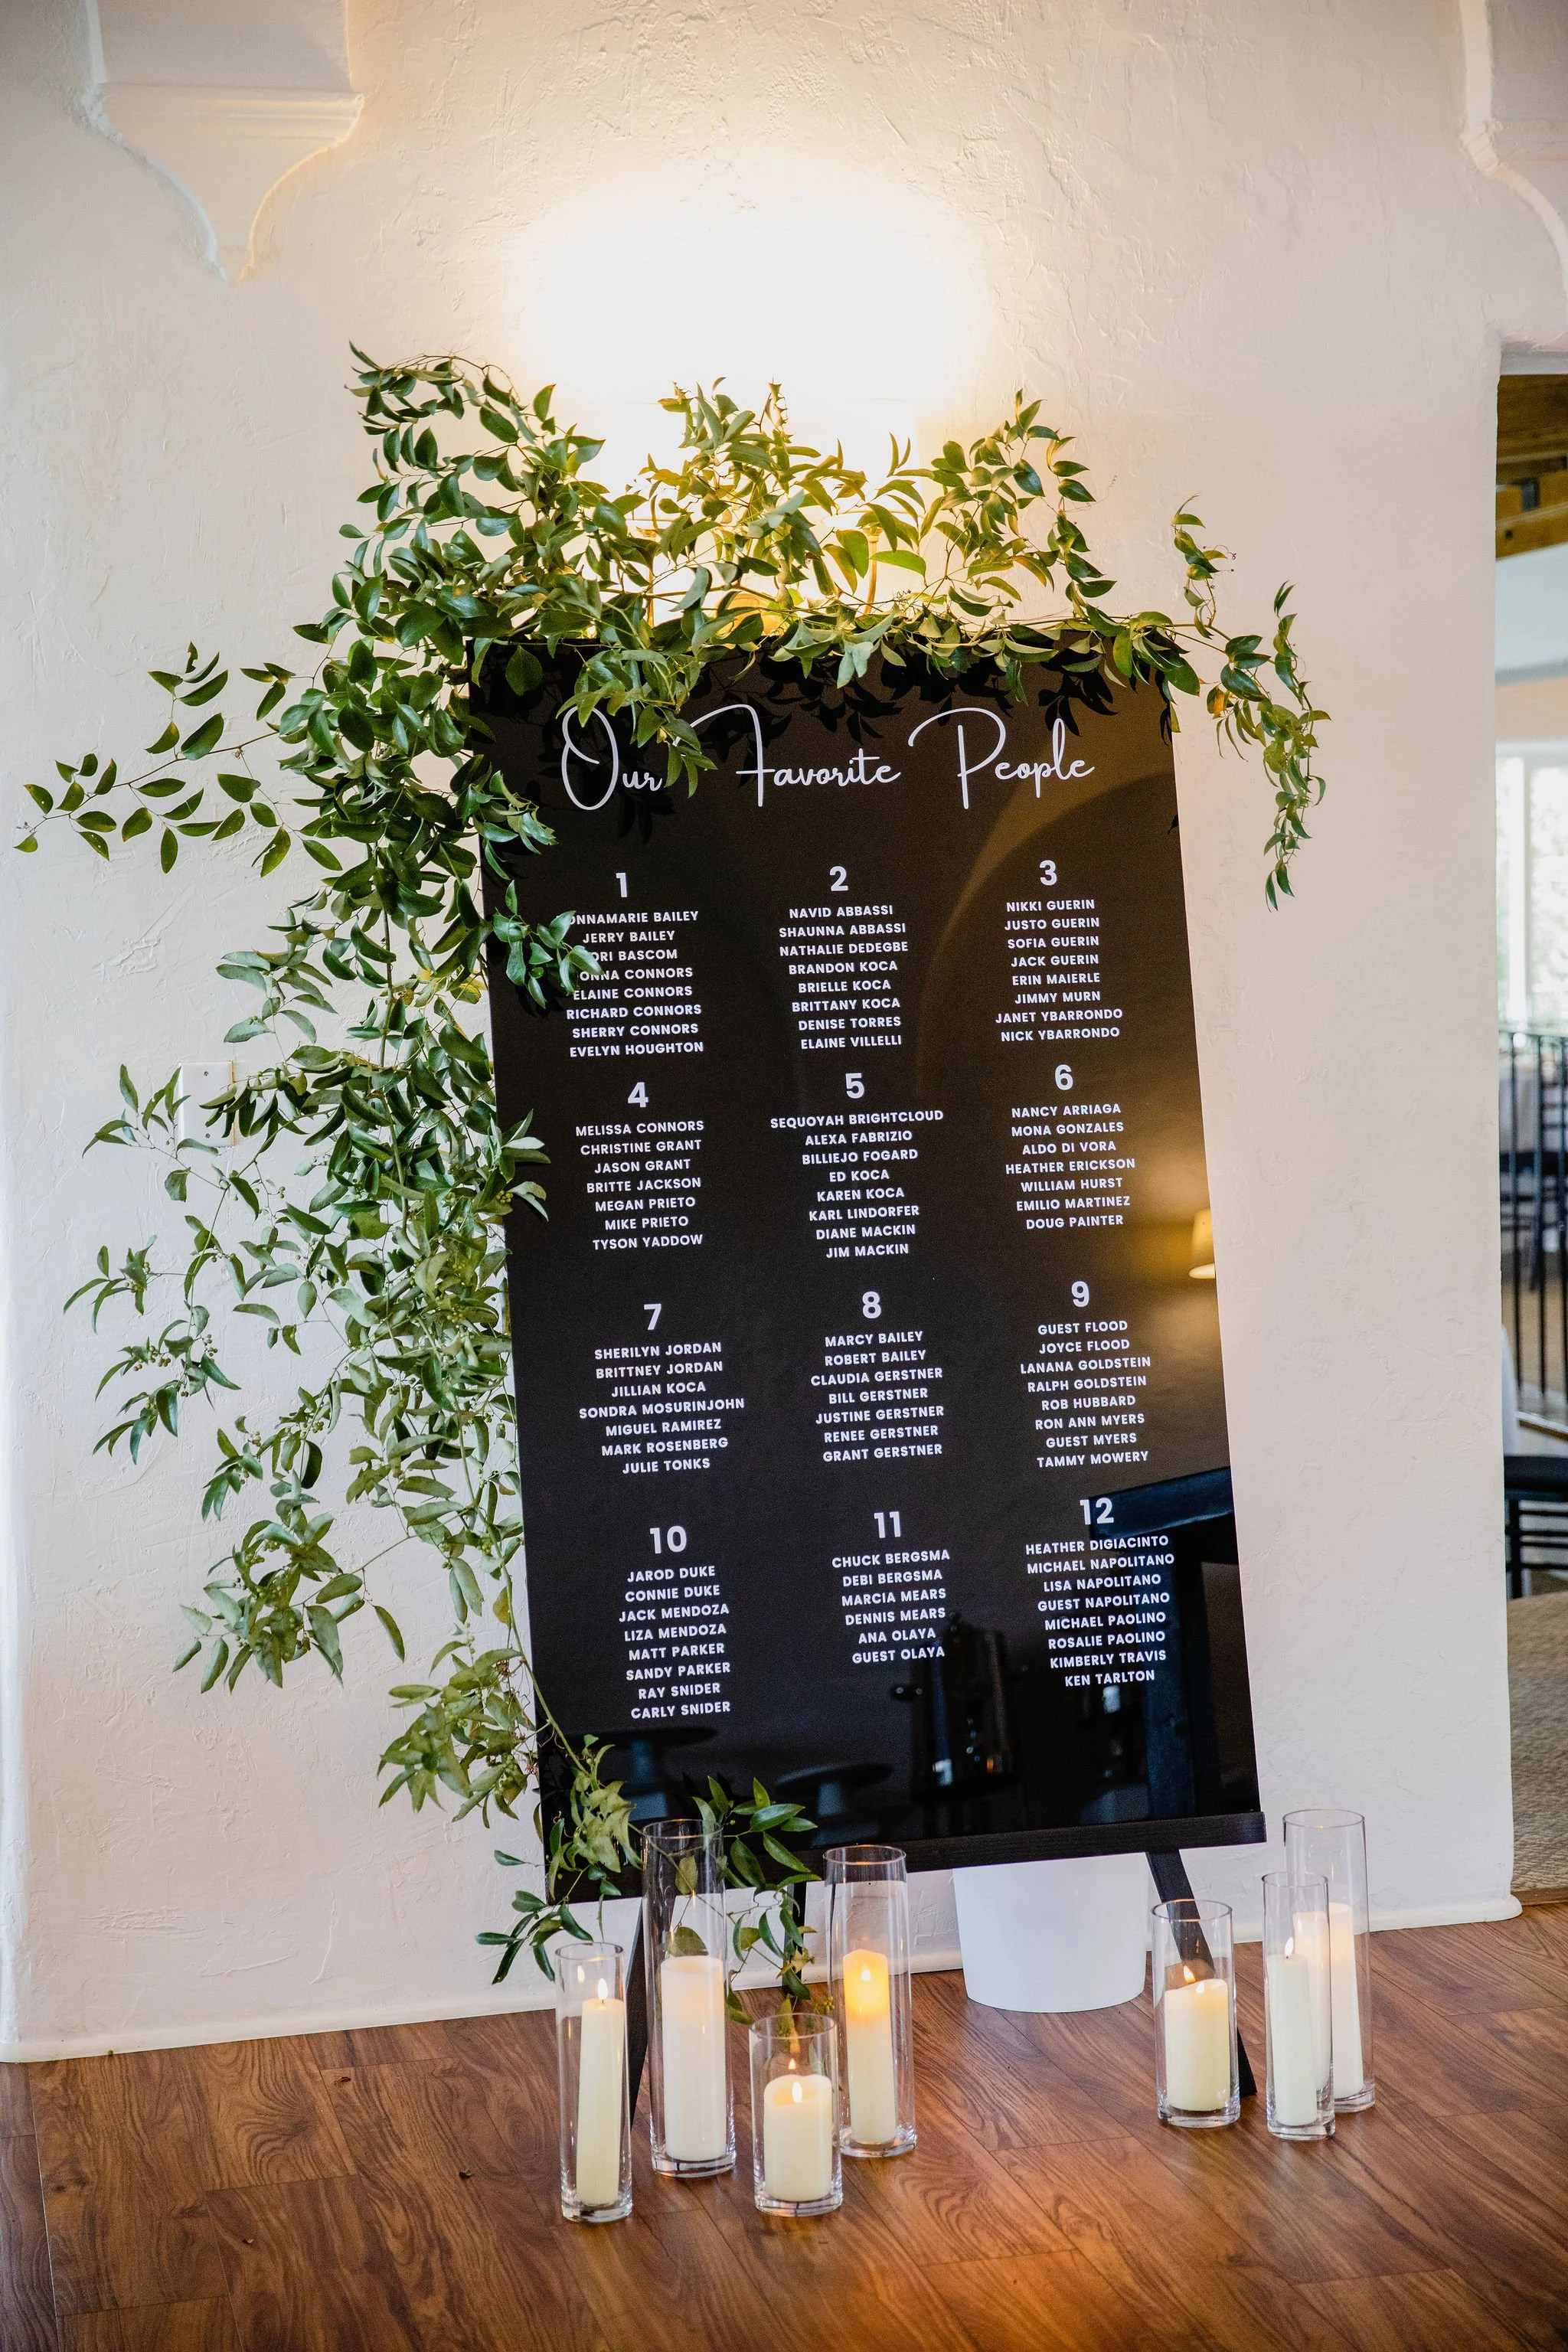 Our Favorite People
1
BAILEY
JERRY BAILEY
BASCOM
CONNORS
ELAINE CONNORS
RICHARD CONNORS
SHERRY CONNORS
EVELYN HOUGHTON
2
NAVID ABBASSI
SHAUNNA ABBASSI
NATHALIE DEDEGBE
BRANDON KOCA
BRIELLE KOCA
BRITTANY KOCA
DENISE TORRES
ELAINE VILLELLI
3
NIKKI GUERIN
JUSTO GUERIN
SOFIA GUERIN
JACK GUERIN
ERIN MAIERLE
JIMMY MURN
JANET YBARRONDO
NICK YBARRONDO
4
MELISSA CONNORS
CHRISTINE GRANT
JASON GRANT
BRITTE JACKSON
MEGAN PRIETO
MIKE PRIETO
TYSON YADDOW
5
SEQUOYAH BRIGHTCLOUD
ALEXA FABRIZIO
BILLIEJO FOGARD
ED KOCA
KAREN KOCA
KARL LINDORFER
DIANE MACKIN
JIM MACKIN
6
NANCY ARRIAGA
MONA GONZALES
ALDO DI VORA
HEATHER ERICKSON
WILLIAM HURST
EMILIO MARTINEZ
DOUG PAINTER
7
SHERILYN JORDAN
BRITTNEY JORDAN
JILLIAN KOCA
SONDRA MOSURINJOHN
MIGUEL RAMIREZ
MARK ROSENBERG
JULIE TONKS
8
MARCY BAILEY
ROBERT BAILEY
CLAUDIA GERSTNER
BILL GERSTNER
JUSTINE GERSTNER
RENEE GERSTNER
GRANT GERSTNER
9
GUEST FLOOD
JOYCE FLOOD
LANANA GOLDSTEIN
RALPH GOLDSTEIN
ROB HUBBARD
RON ANN MYERS
GUEST MYERS
TAMMY MOWERY
10
JAROD DUKE
CONNIE DUKE
JACK MENDOZA
LIZA MENDOZA
MATT PARKER
SANDY PARKER
RAY SNIDER
CARLY SNIDER
11
CHUCK BERGSMA
DEBI BERGSMA
MARCIA MEARS
DENNIS MEARS
ANA OLAYA
GUEST OLAYA
12
HEATHER DIGIACINTO
MICHAEL NAPOLITANO
LISA NAPOLITANO
GUEST NAPOLITANO
MICHAEL PAOLINO
ROSALIE PAOLINO
KIMBERLY TRAVIS
KEN TARLTON